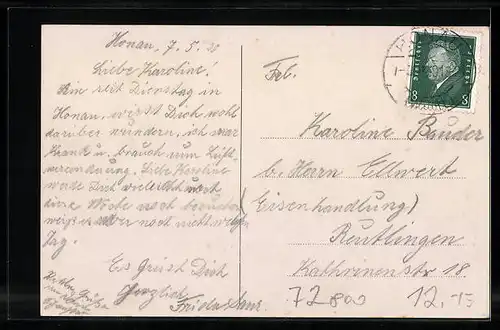 Honau, 7. 5.
Liebe Karoline!
Bin seit Dienstag in
Honau, wirst Dich wohl
darüber wundern, ich war
krank u. brauch nun Luft-
veränderung. Liebe Karoline
werde Dich vielleicht noch
eine Woche noch besuchen
weiß es aber noch nicht welchen
Tag.
Es Grüsst Dich
Herzlich
Frida
Frl.
Karoline Bauder
b. Herrn Ellwert
(Eisenhandlung)
Reutlingen
Kathrinenstr 18.
72800 12.-15
8 8